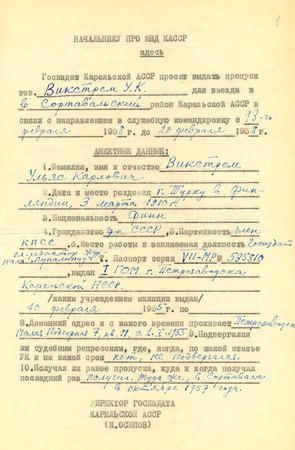 1
НАЧАЛЬНИКУ ПРО МВД КАССР
здесь
Госиздат Карельской АССР просит выдать пропуск
тов. Викстрем У.К. для въезда в
в Сортавальский район Карельской АССР в
связи с направлением в служебную командировку с 13-го
февраля 1958 г. до 20 февраля 1958 г.
АНКЕТНЫЕ ДАННЫЕ:
1.Фамилия, имя и отчество Викстрем
Ульяс Карлович.
2.Дата и место рождения г. Турку в Фин-
ляндии, 3 марта 1910 г.
3.Национальность Финн
4.Гражданство гр-н СССР 5.Партийность член
КПСС 6.Место работы и занимаемая должность Госиздат
гл. редактор
7. Паспорт серии VII-МР № 575710
выдан I ГОМ г. Петрозаводска
Карельской АССР.
/каким учреждением милиции выдан/
10 февраля 1955 г. по
8.Домашний адрес и с какого времени проживает Петрозаводск
9.Подвергался
ли судебным репрессиям, где, когда, по какой статье
УК и на какой срок нет, не подвергался.
10.Получал ли ранее пропуска, куда и когда получал
последний раз получал туда же, в Сортавала
в октябре 1957 года.
ДИРЕКТОР ГОСИЗДАТА
КАРЕЛЬСКОЙ АССР
(И.ОСИПОВ)